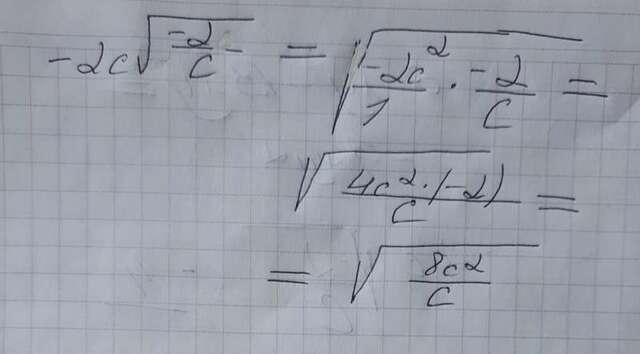 -2c√(-2/c) = √(-2c²/1 · -2/c) =
√(4c²·(-2)/c) =
= √(8c²/c)